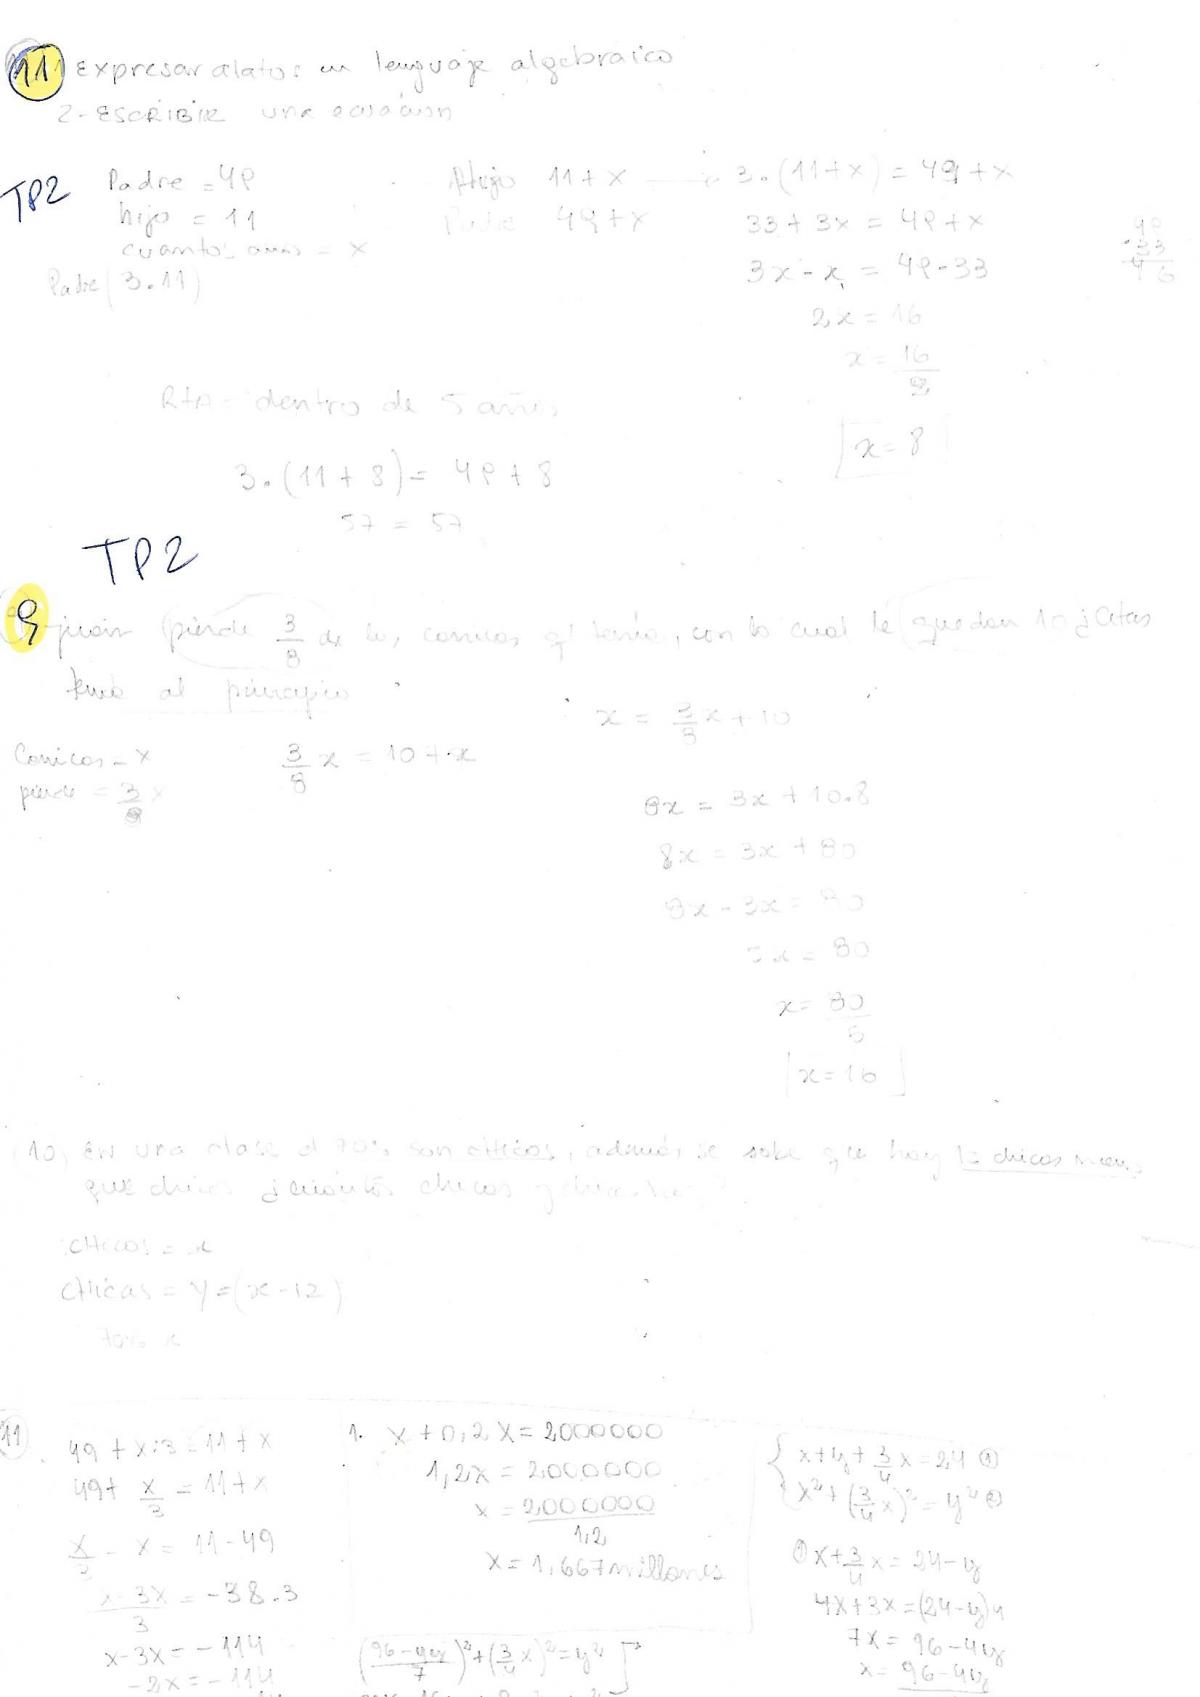 11) Expresar datos en lenguaje algebraico
2- ESCRIBIR una ecuación
TP2
Padre = 49
hijo = 11
cuantos años = x
Padre (3.11)
Hijo 11+x → 3.(11+x) = 49+x
Padre 49+x
33+3x = 49+x
3x-x = 49-33
2x = 16
x = 16/2
x = 8
49
-33
16
RTA - dentro de años
3.(11+8) = 49+8
57 = 57
TP2
9 Juan pierde 3/8 de los comicos q' tenía, con lo cual le quedan 10 ¿Cuantas
tenía al principio
Comicos = x
pierde = 3/8 x
3/8 x = 10+x
x = 3/8 x + 10
8x = 3x + 10.8
8x = 3x + 80
8x - 3x = 80
5x = 80
x = 80/5
x = 16
10) En una clase el 70% son chicos, además se sabe que hay 12 chicas menos
que chicos ¿cuántos chicos y chicas hay?
chicos = x
CHicas = y = (x-12)
70% x
11
49 + x:3 = 11+x
49+ x/3 = 11+x
x/3 - x = 11-49
x-3x/3 = -38.3
x-3x = -114
-2x = -114
1. x+0,2x = 2000000
1,2x = 2000000
x = 2000000/1,2
x = 1,667 millones
(96-4y/7)² + (3/4 x)² = y²
{ x+y+3/4 x = 24 ①
x² + (3/4 x)² = y² ②
① x+3/4 x = 24-y
4x+3x = (24-y)4
7x = 96-4y
x = 96-4y